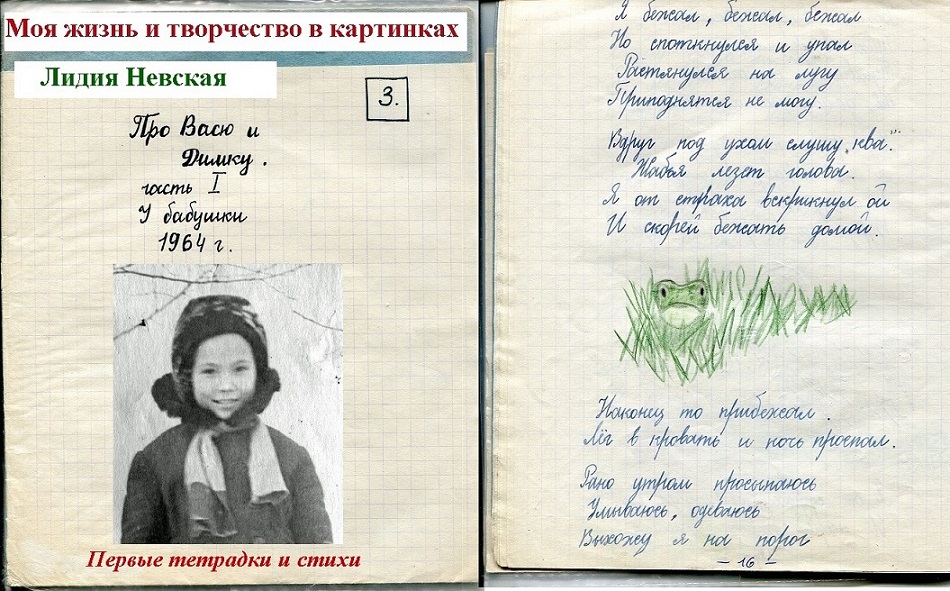 Моя жизнь и творчество в картинках
Лидия Невская
3.
Про Васю и
Димку.
часть I
У бабушки
1964 г.
Первые тетрадки и стихи
Я бежал, бежал, бежал
Но споткнулся и упал
Растянулся на лугу
Приподнятся не могу.
Вдруг под ухом слушу „ква."
Жабья лезет голова.
Я от страха вскрикнул ой
И скорей бежать домой.
Наконец то прибежал.
Лёг в кровать и ночь проспал.
Рано утром просыпаюсь
Умываюсь, одеваюсь
Выхожу я на порог
– 16 –